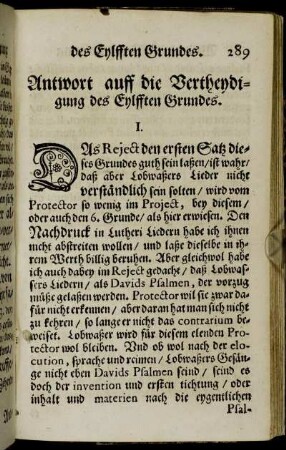 des Eylfften Grundes. 289
Antwort auff die Vertheydi-
gung des Eylfften Grundes.
I.
DAs Reject den ersten Satz die-
ses Grundes guth sein laßen/ ist wahr/
daß aber Lobwaßers Lieder nicht
verständlich sein solten / wird vom
Protector so wenig im Project, bey diesem /
oder auch den 6. Grunde/ als hier erwiesen. Den
Nachdruck in Lutheri Liedern habe ich ihnen
nicht abstreiten wollen / und laße dieselbe in ih-
rem Werth billig beruhen. Aber gleichwol habe
ich auch dabey im Reject gedacht / daß Lobwas-
sers Liedern / als Davids Psalmen, der vorzug
müße gelaßen werden. Protector wil sie zwar da-
für nicht erkennen / aber daran hat man sich nicht
zu kehren / so lange er nicht das contrarium be-
weiset. Lobwaßer wird für diesem elenden Pro-
tector wol bleiben. Und ob wol nach der elo-
cution, sprache und reimen / Lobwaßers Gesän-
ge nicht eben Davids Psalmen seind / seind es
doch der invention und ersten tichtung / oder
inhalt und materien nach die eygentlichen
Psal-